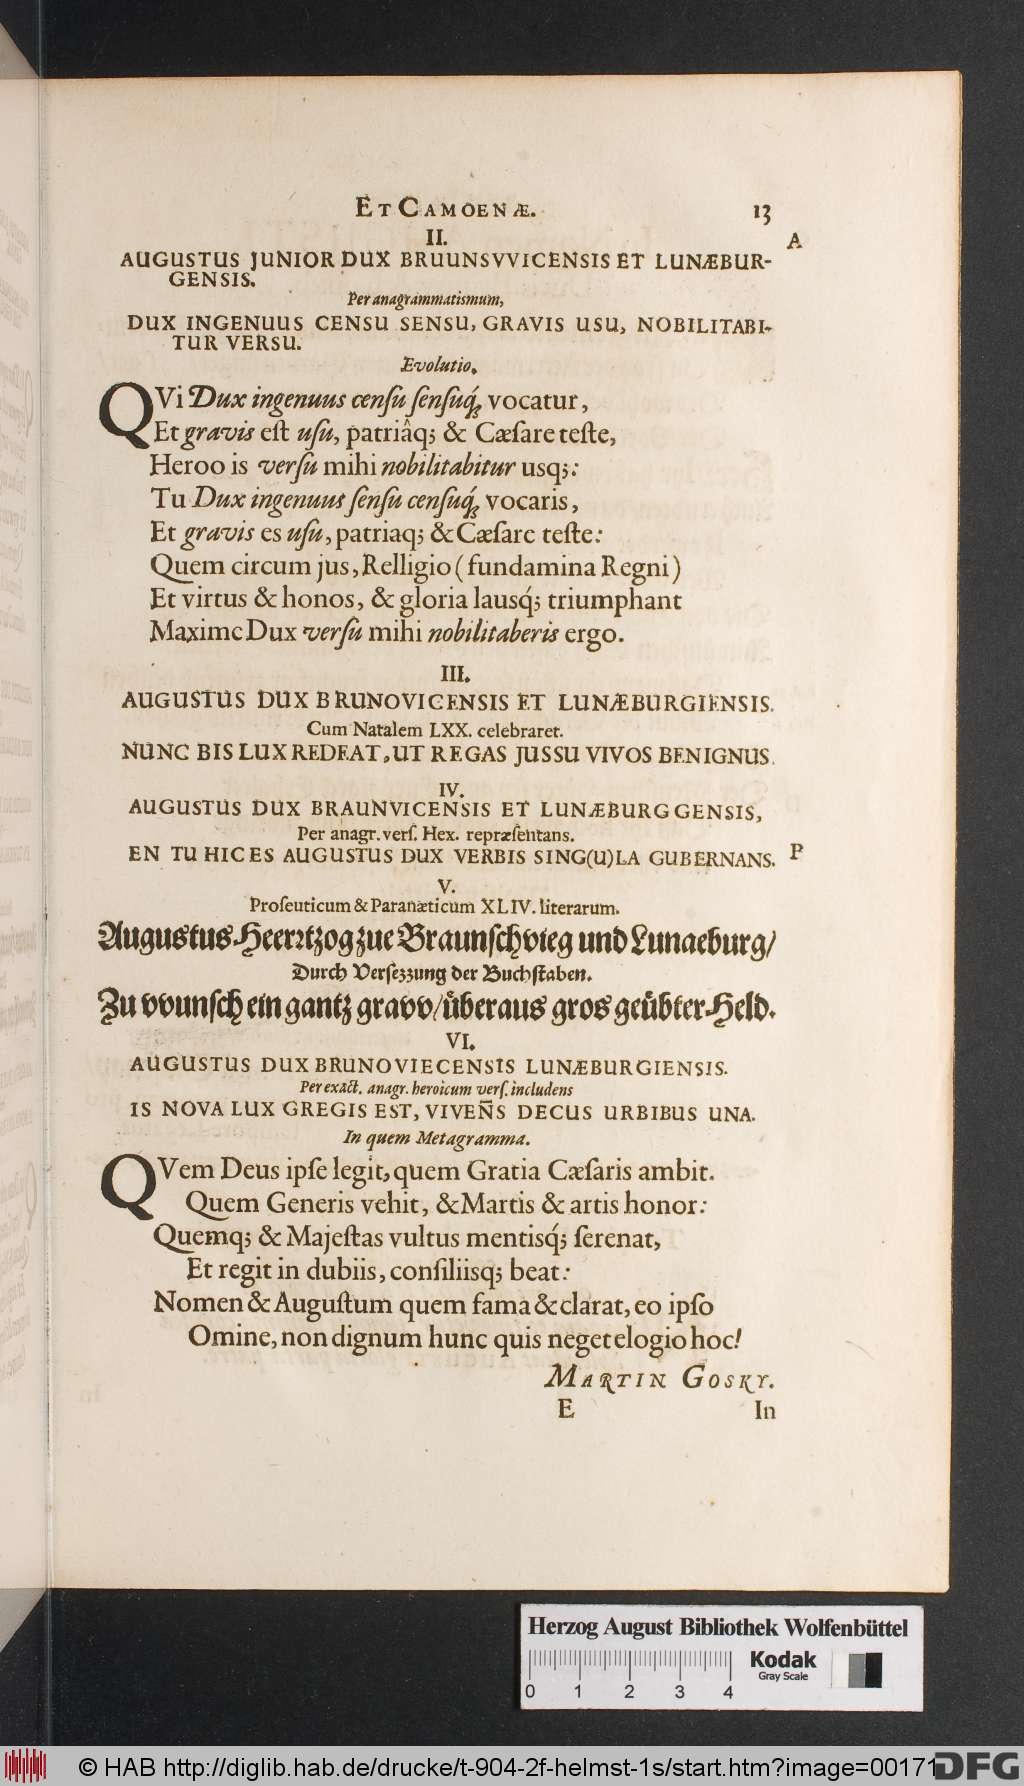 ET CAMOENÆ. 13
II. A
AUGUSTUS JUNIOR DUX BRUUNSVVICENSIS ET LUNÆBUR-
GENSIS.
Per anagrammatismum,
DUX INGENUUS CENSU SENSU, GRAVIS USU, NOBILITABI-
TUR VERSU.
Evolutio.
QVi Dux ingenuus censu sensuq́; vocatur,
Et gravis est usu, patriâq; & Cæsare teste,
Heroo is versu mihi nobilitabitur usq;:
Tu Dux ingenuus sensu censuq́; vocaris,
Et gravis es usu, patriaq; & Cæsare teste:
Quem circum jus, Relligio (fundamina Regni)
Et virtus & honos, & gloria lausq́; triumphant
Maxime Dux versu mihi nobilitaberis ergo.
III.
AUGUSTUS DUX BRUNOVICENSIS ET LUNÆBURGIENSIS.
Cum Natalem LXX. celebraret.
NUNC BIS LUX REDEAT, UT REGAS JUSSU VIVOS BENIGNUS.
IV.
AUGUSTUS DUX BRAUNVICENSIS ET LUNÆBURGGENSIS,
Per anagr. vers. Hex. repræsentans.
EN TU HIC ES AUGUSTUS DUX VERBIS SING(U)LA GUBERNANS. P
V.
Proseuticum & Paranæticum XLIV. literarum.
Augustus Heerrtzog zue Braunschvieg und Lunaeburg/
Durch Versezzung der Buchstaben.
Zu vvunsch ein gantz gravv/ überaus gros geübter Held.
VI.
AUGUSTUS DUX BRUNOVIECENSIS LUNÆBURGIENSIS.
Per exact. anagr. heroicum vers. includens
IS NOVA LUX GREGIS EST, VIVEN̄S DECUS URBIBUS UNA.
In quem Metagramma.
QVem Deus ipse legit, quem Gratia Cæsaris ambit.
Quem Generis vehit, & Martis & artis honor:
Quemq; & Majestas vultus mentisq́; serenat,
Et regit in dubiis, consiliisq; beat:
Nomen & Augustum quem fama & clarat, eo ipso
Omine, non dignum hunc quis neget elogio hoc!
MARTIN GOSKY.
E In
Herzog August Bibliothek Wolfenbüttel
Kodak
Gray Scale
0 1 2 3 4
© HAB http://diglib.hab.de/drucke/t-904-2f-helmst-1s/start.htm?image=00171
DFG